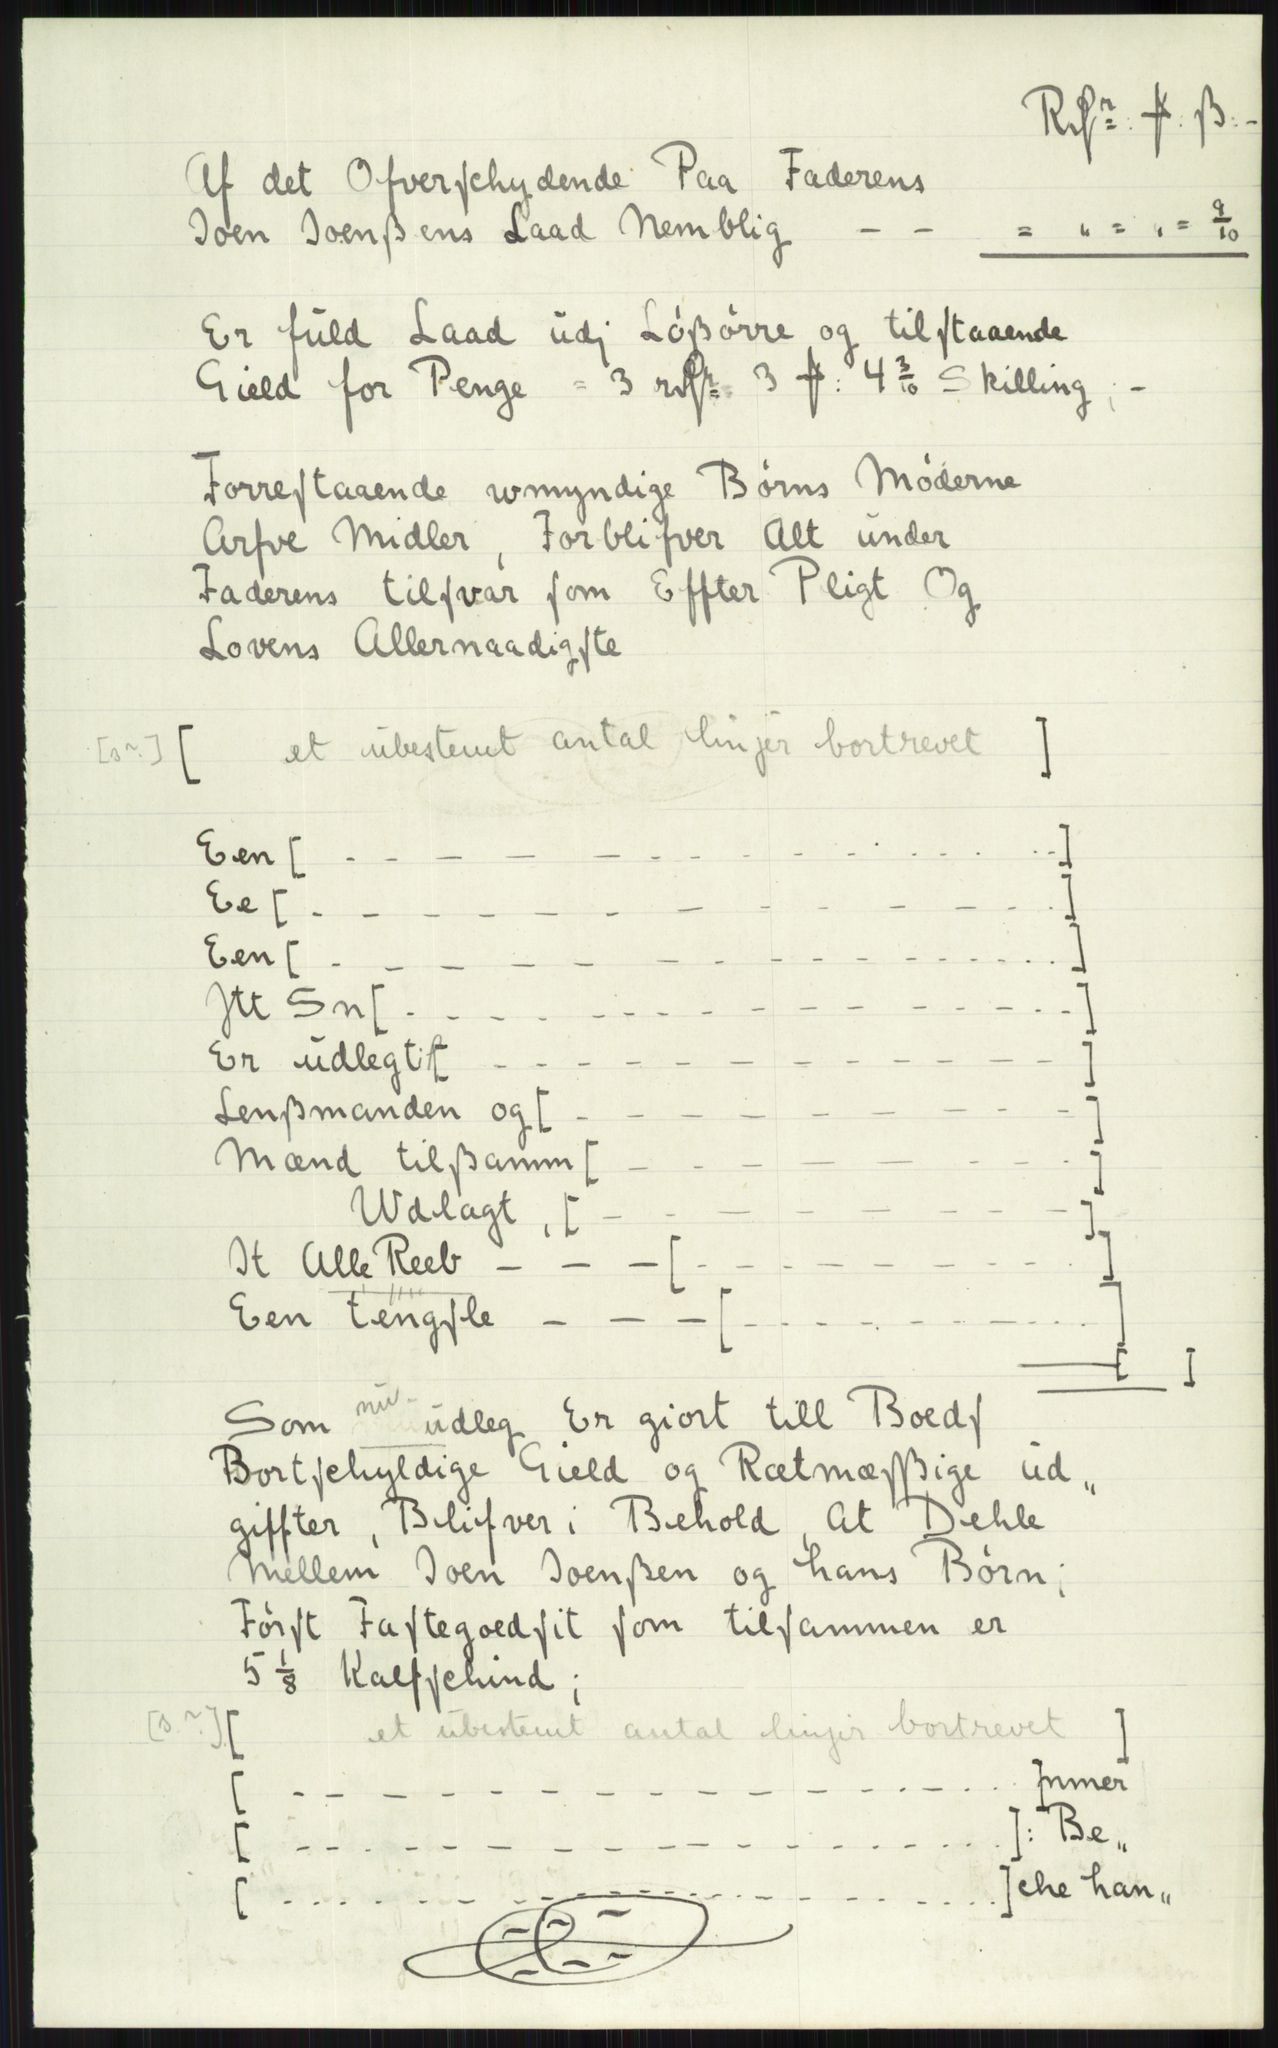 Rdr: ƒ: ß: -
Af det Ofverſchydende Paa Faderens
Joen Joenßens Laad Nemblig - - = „ = „ = 9/10
Er fůld Laad ůdj Lößörre og tilſtaaende
Gield for Penge = 3 rdr 3 ƒ: 4 3/10 Skilling; -
Forreſtaaende wmyndige Börns Möderne
Arfve Midler, Forblifver Alt ůnder
Faderens tilſvar ſom Effter Pligt Og
Lovens Allernaadigſte
[s.?] [ et ubestemt antal linjer bortrevet ]
Een [ - - - - - - - - - - ]
Ee [ - - - - - - - - - - ]
Een [ - - - - - - - - - - ]
Jtt Sn [ - - - - - - - - - - ]
Er ůdlegt [ - - - - - - - - - - ]
Lenßmanden og [ - - - - - - - - - ]
Mænd tilßamm [ - - - - - - - - ]
Wdlagt, [ - - - - - - - - ]
It Alle Reeb - - - [ - - - - - - - - ]
Een tengſle - - - [ - - - - - - - - ]
[ ]
Som nů ůdleg Er giort till Boedſ
Bortſchyldige Gield og Rætmæſßige ůd„
giffter, Blifver i Behold, At Dehle
Mellem Joen Joenßen og hans Börn;
Förſt Faſtegoedſit ſom tilſammen er
5 1/8 Kalfſchind;
[s.?] [ et ubestemt antal linjer bortrevet ]
[ - - - - - - - - - - ]mmer
[ - - - - - - - - - - ]: Be„
[ - - - - - - - - - - ]che han„